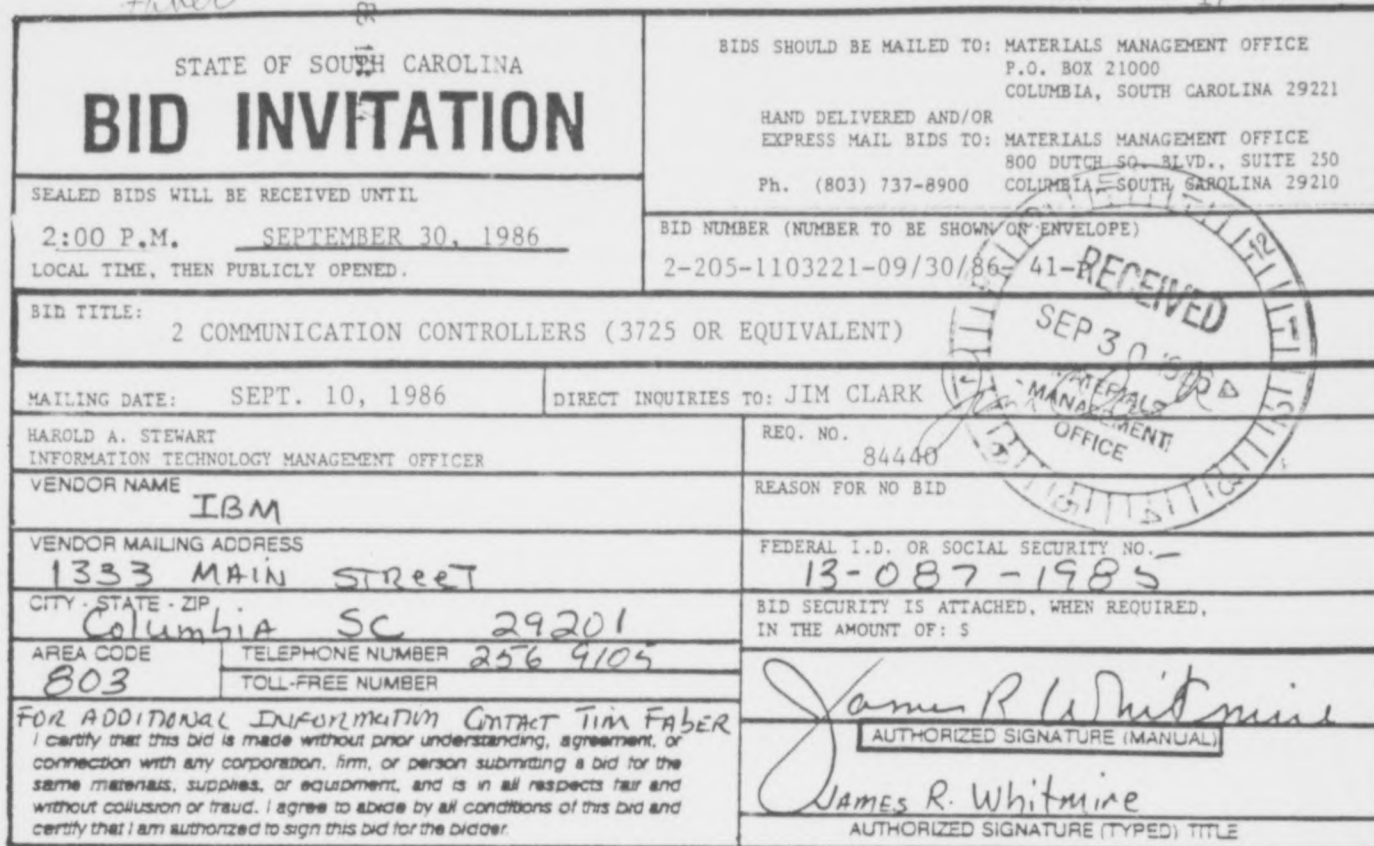 STATE OF SOUTH CAROLINA
BID INVITATION
SEALED BIDS WILL BE RECEIVED UNTIL
2:00 P.M. SEPTEMBER 30, 1986
LOCAL TIME, THEN PUBLICLY OPENED.
BIDS SHOULD BE MAILED TO: MATERIALS MANAGEMENT OFFICE
P.O. BOX 21000
COLUMBIA, SOUTH CAROLINA 29221
HAND DELIVERED AND/OR
EXPRESS MAIL BIDS TO: MATERIALS MANAGEMENT OFFICE
800 DUTCH SQ. BLVD., SUITE 250
Ph. (803) 737-8900 COLUMBIA, SOUTH CAROLINA 29210
BID NUMBER (NUMBER TO BE SHOWN ON ENVELOPE)
2-205-1103221-09/30/86- 41-
RECEIVED
SEP 30
MATERIALS
MANAGEMENT
OFFICE
BID TITLE:
2 COMMUNICATION CONTROLLERS (3725 OR EQUIVALENT)
MAILING DATE: SEPT. 10, 1986 DIRECT INQUIRIES TO: JIM CLARK
HAROLD A. STEWART
INFORMATION TECHNOLOGY MANAGEMENT OFFICER
REQ. NO.
84440
VENDOR NAME
IBM
REASON FOR NO BID
VENDOR MAILING ADDRESS
1333 MAIN STREET
FEDERAL I.D. OR SOCIAL SECURITY NO.
13-087-1985
CITY - STATE - ZIP
Columbia SC 29201
BID SECURITY IS ATTACHED, WHEN REQUIRED,
IN THE AMOUNT OF: $
AREA CODE
803
TELEPHONE NUMBER 256 9105
TOLL-FREE NUMBER
FOR ADDITIONAL INFORMATION CONTACT TIM FABER
I certify that this bid is made without prior understanding, agreement, or
connection with any corporation, firm, or person submitting a bid for the
same materials, supplies, or equipment, and is in all respects fair and
without collusion or fraud. I agree to abide by all conditions of this bid and
certify that I am authorized to sign this bid for the bidder.
James R Whitmire
AUTHORIZED SIGNATURE (MANUAL)
JAMES R. Whitmire
AUTHORIZED SIGNATURE (TYPED) TITLE